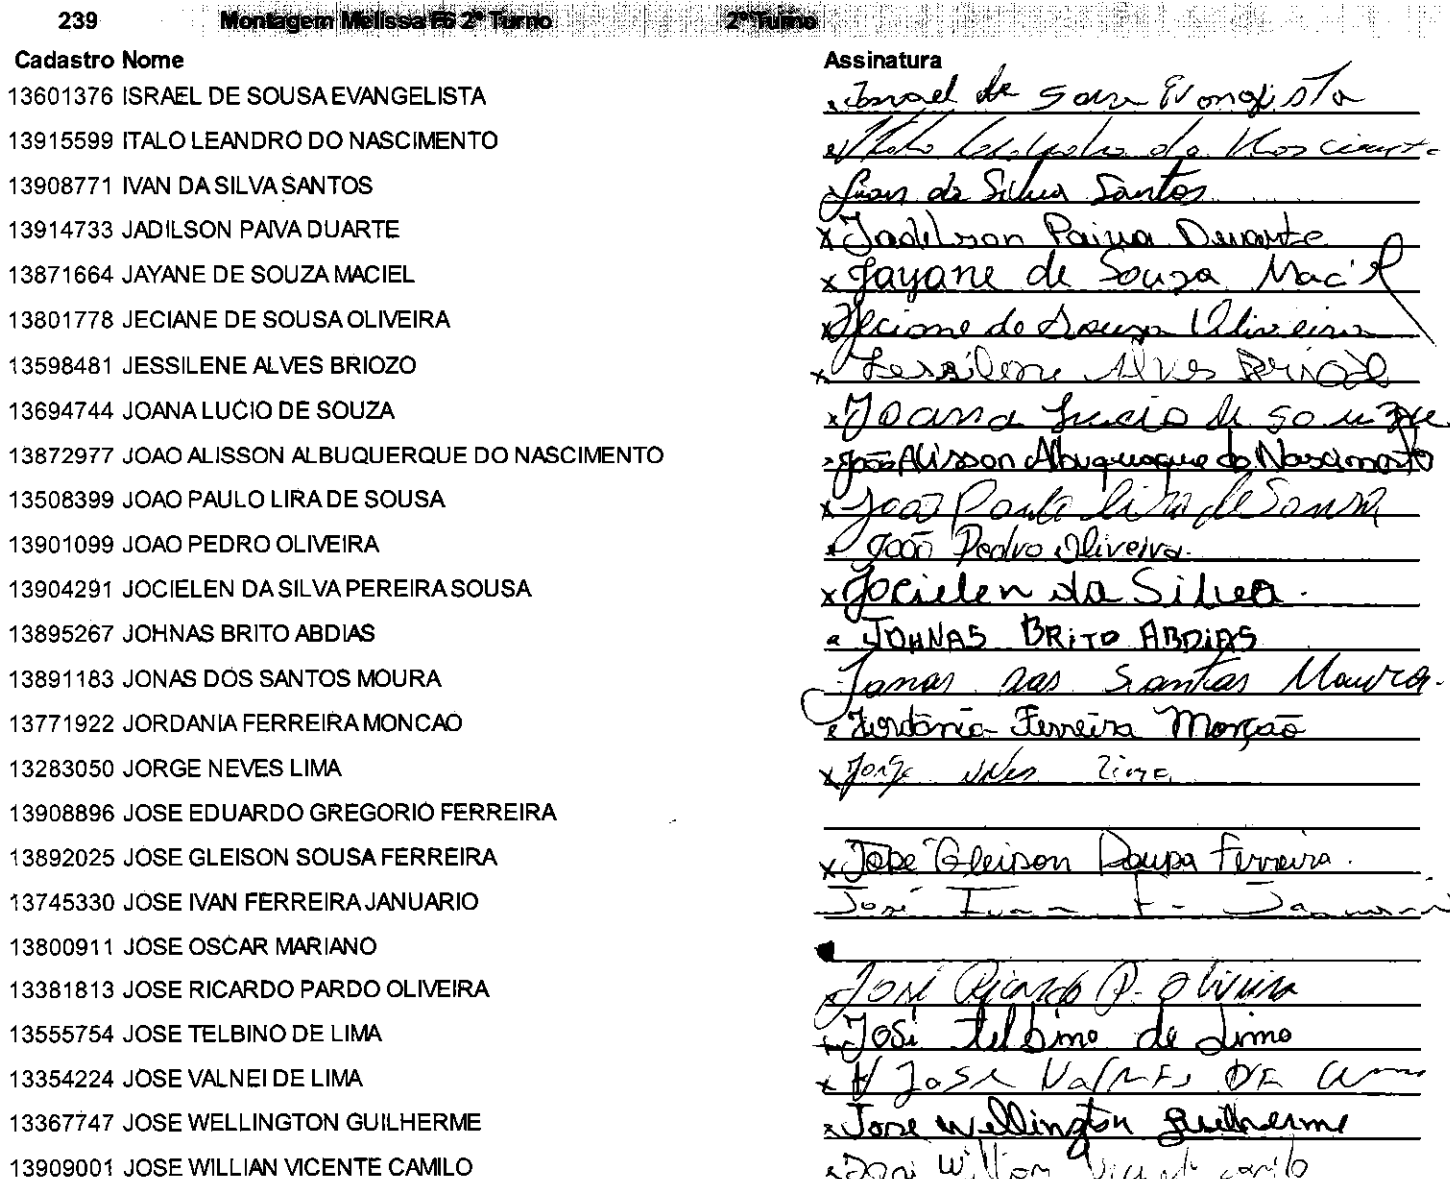 239 Montagem Melissa F6 2º Turno 2º Turno
Cadastro Nome Assinatura
13601376 ISRAEL DE SOUSA EVANGELISTA Israel de Sousa Evangelista
13915599 ITALO LEANDRO DO NASCIMENTO Italo do Nasciment
13908771 IVAN DA SILVA SANTOS Ivan da Silva Santos
13914733 JADILSON PAIVA DUARTE x Jadilson Paiva Duarte
13871664 JAYANE DE SOUZA MACIEL x Jayane de Souza Maciel
13801778 JECIANE DE SOUSA OLIVEIRA x Jeciane de Sousa Oliveira
13598481 JESSILENE ALVES BRIOZO x Jessilene Alves
13694744 JOANA LUCIO DE SOUZA x Joana Lucio de
13872977 JOAO ALISSON ALBUQUERQUE DO NASCIMENTO João Alisson Albuquerque do Nascimento
13508399 JOAO PAULO LIRA DE SOUSA x João Paulo Lira de Sousa
13901099 JOAO PEDRO OLIVEIRA João Pedro Oliveira.
13904291 JOCIELEN DA SILVA PEREIRA SOUSA x Jocielen da Silva.
13895267 JOHNAS BRITO ABDIAS JOHNAS BRITO ABDIAS
13891183 JONAS DOS SANTOS MOURA Jonas dos Santos Moura.
13771922 JORDANIA FERREIRA MONCAO Jordânia Ferreira Monção
13283050 JORGE NEVES LIMA x Jorge Neves Lima
13908896 JOSE EDUARDO GREGORIO FERREIRA
13892025 JOSE GLEISON SOUSA FERREIRA x José Gleison Sousa Ferreira.
13745330 JOSE IVAN FERREIRA JANUARIO José Ivan F
13800911 JOSE OSCAR MARIANO
13381813 JOSE RICARDO PARDO OLIVEIRA José Ricardo P. Oliveira
13555754 JOSE TELBINO DE LIMA José telbino de Lima
13354224 JOSE VALNEI DE LIMA x José DE
13367747 JOSE WELLINGTON GUILHERME x Jose wellington guilherme
13909001 JOSE WILLIAN VICENTE CAMILO x José Willian Vicente camilo